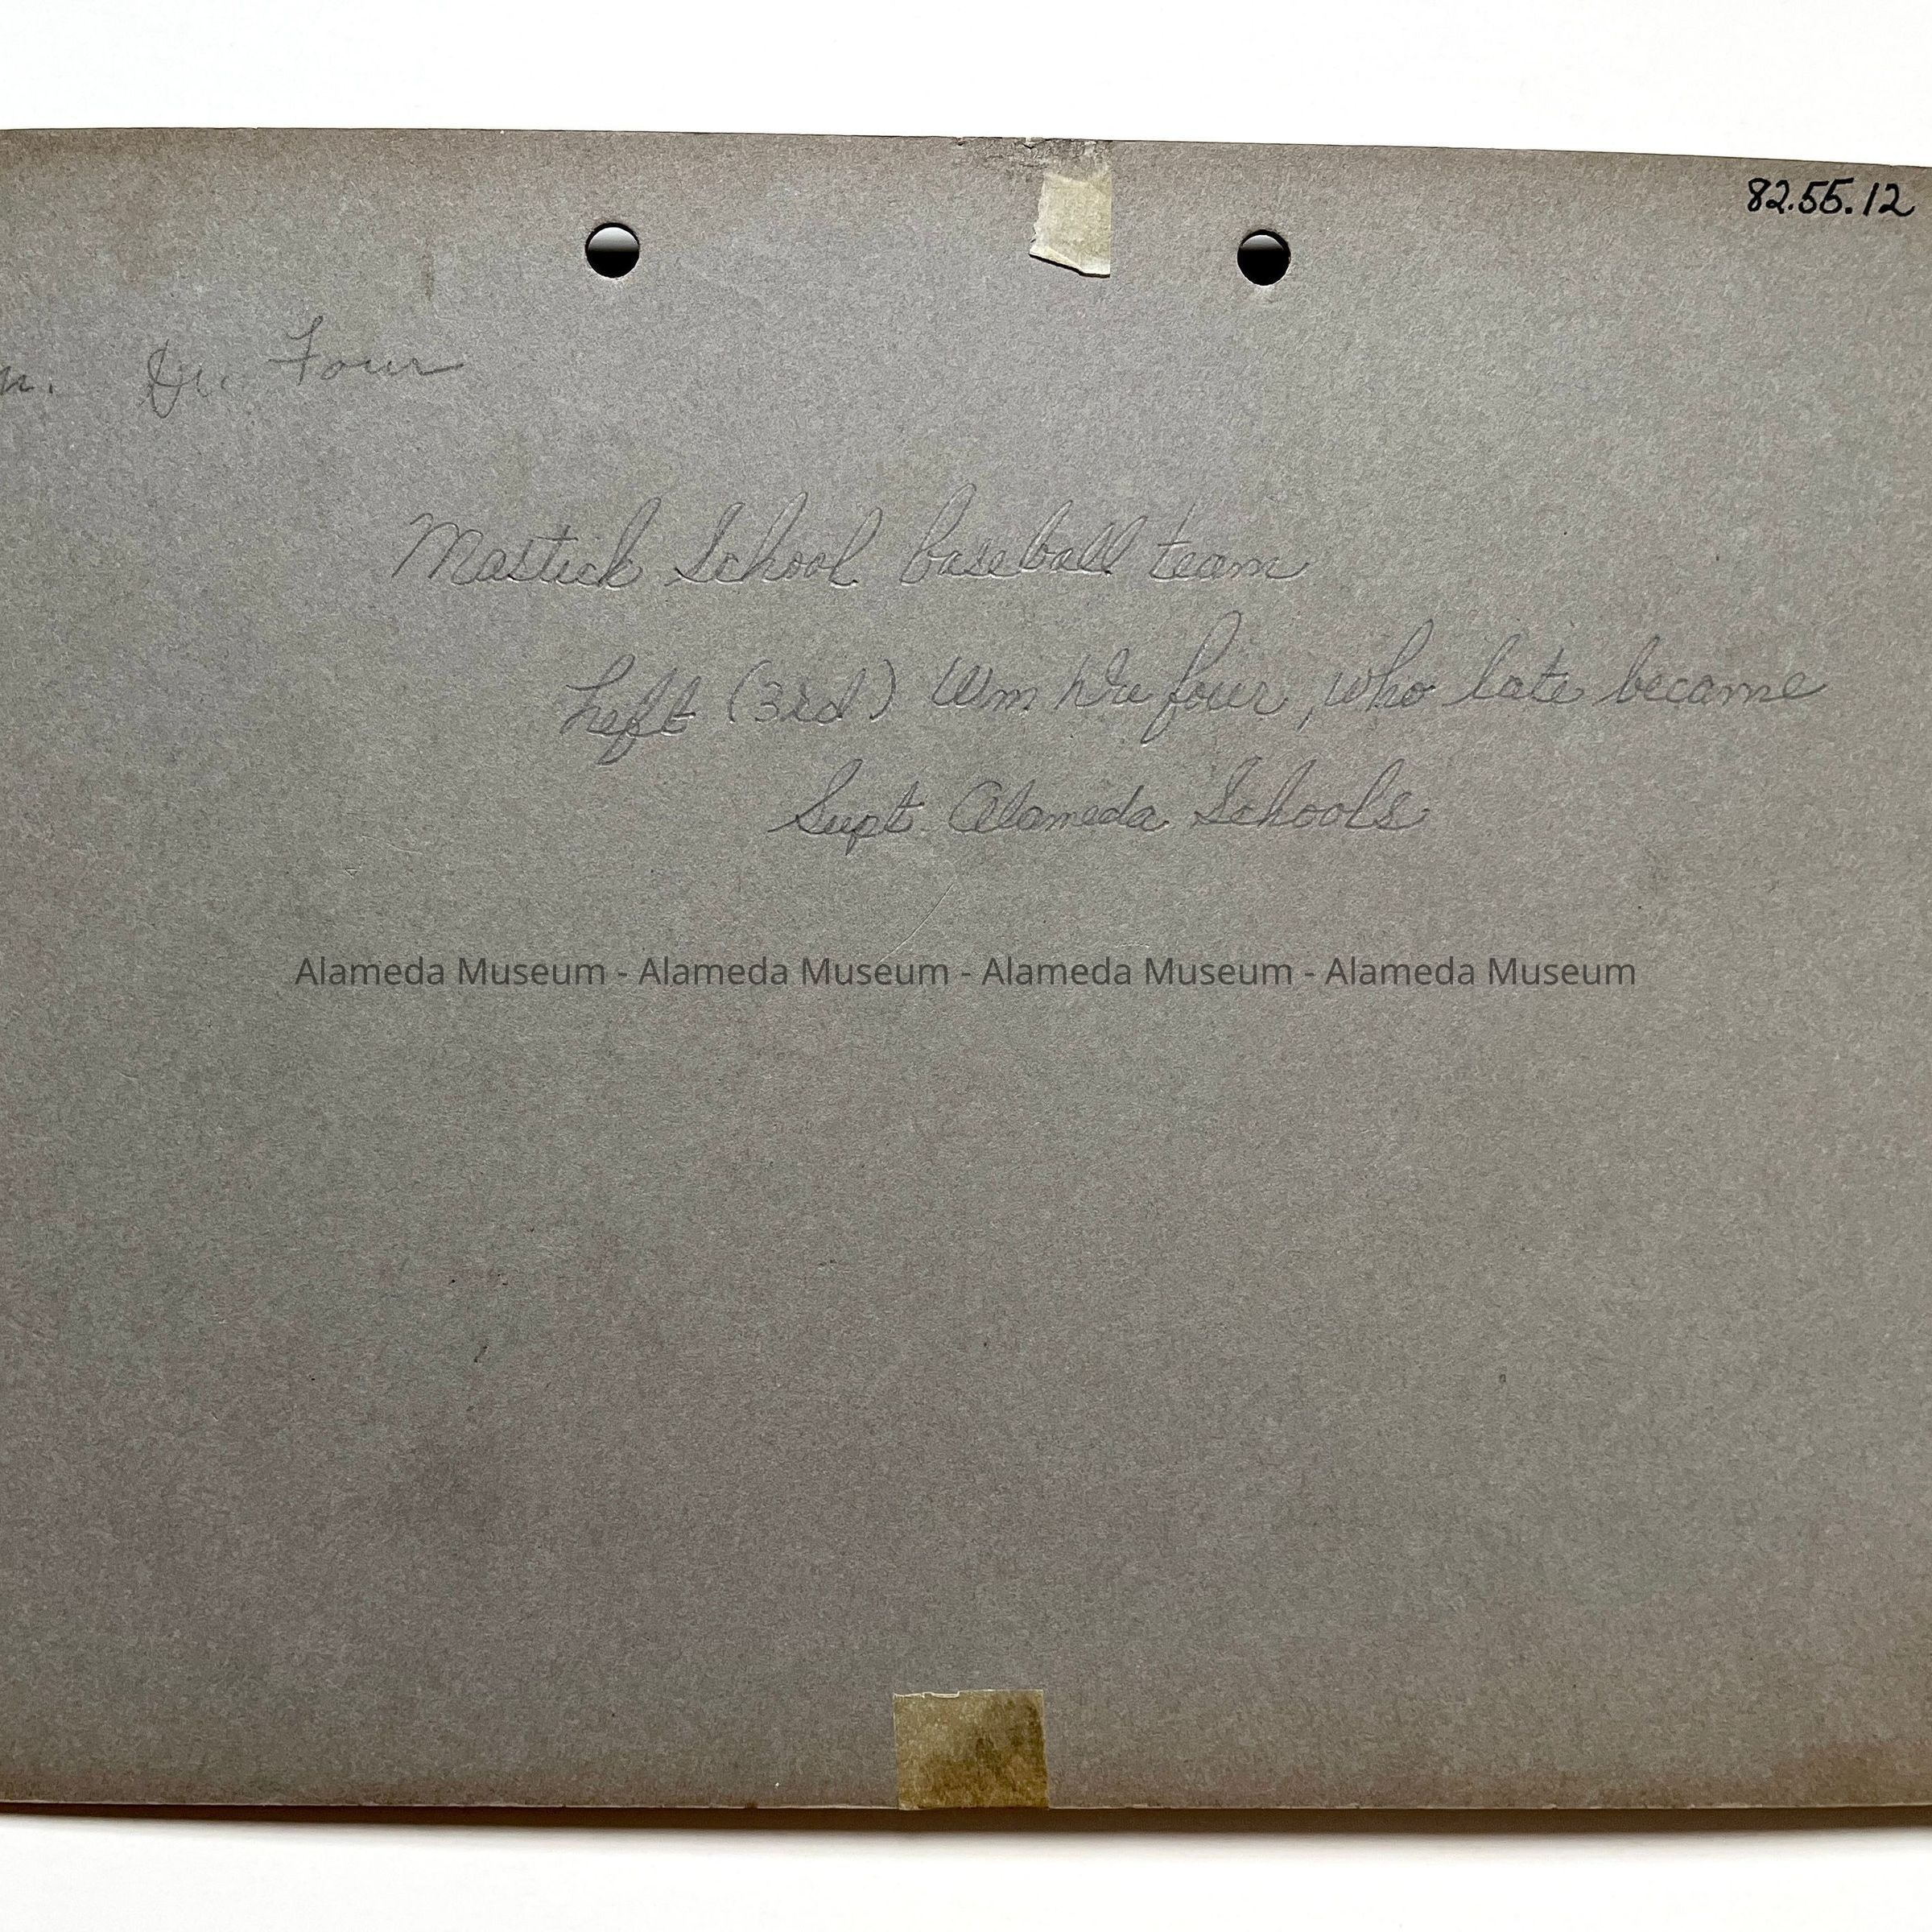 82.55.12
Du Four
Mastick School baseball team
Left (3rd) Wm Du four, who late became
Supt. Alameda Schools
Alameda Museum - Alameda Museum - Alameda Museum - Alameda Museum